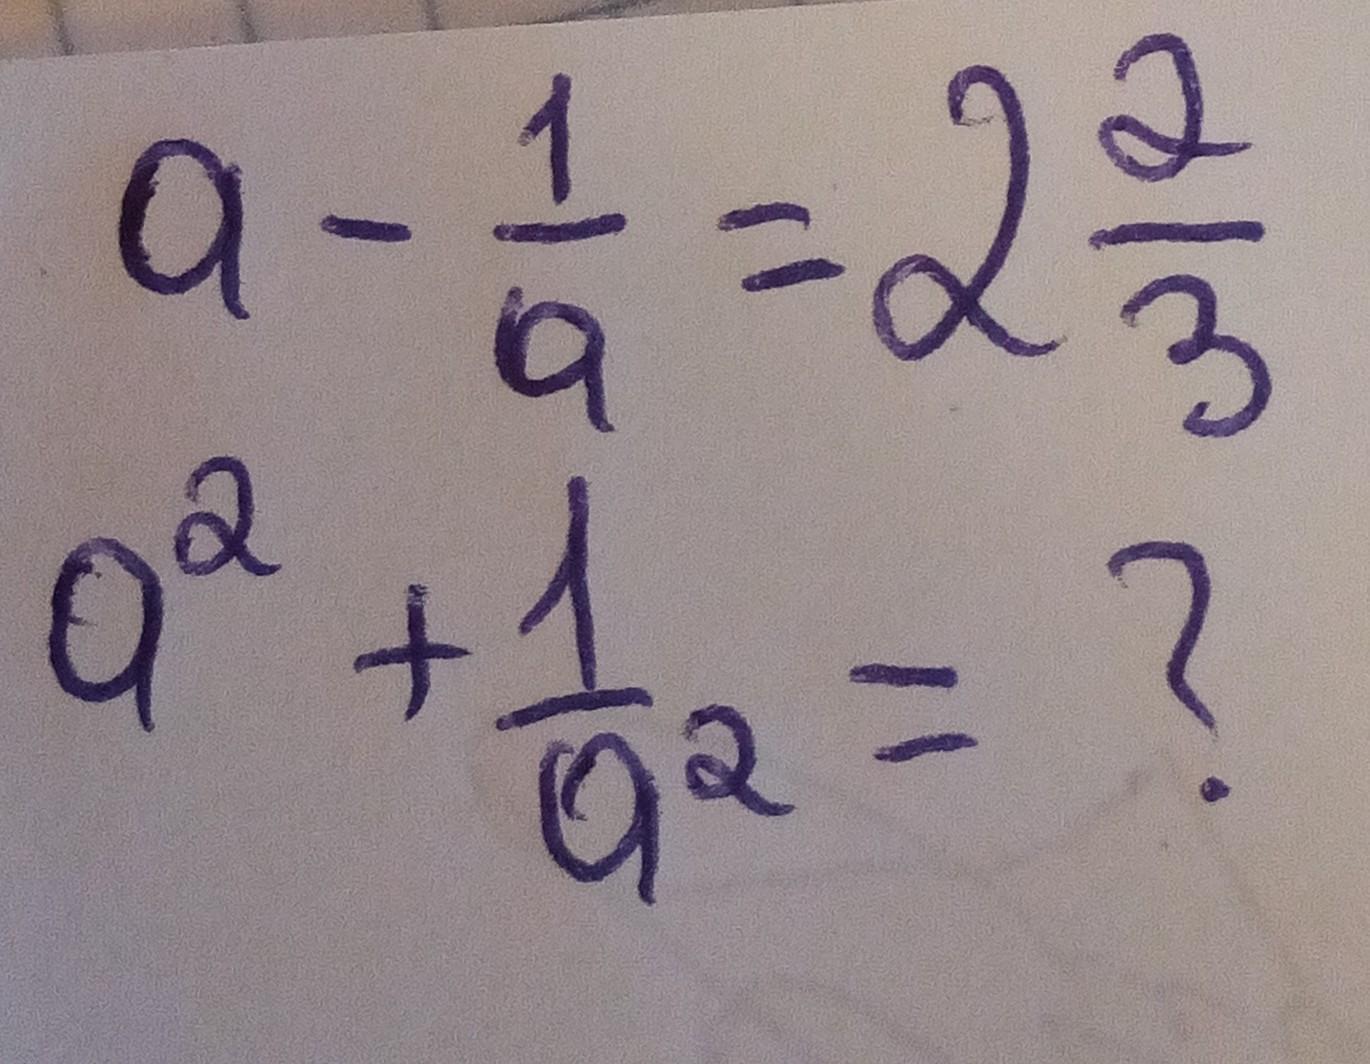 a - 1/a = 2 2/3
a² + 1/a² = ?